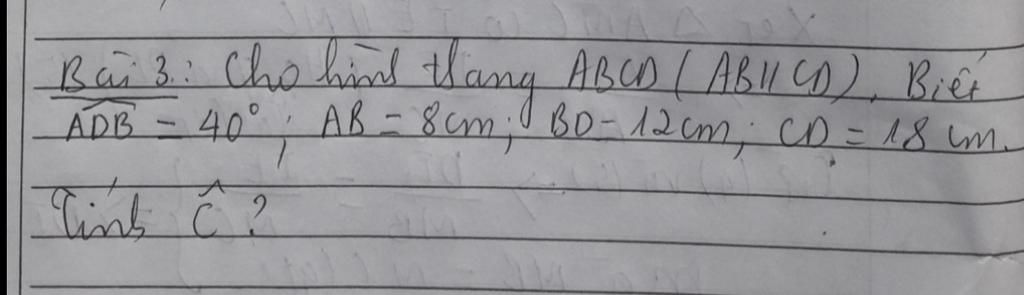 Bài 3: Cho hình thang ABCD (AB // CD). Biết
ADB̂ = 40°; AB = 8cm; BD = 12cm; CD = 18 cm.
Tính Ĉ ?